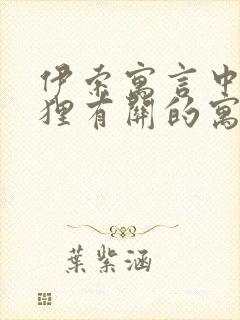 伊索寓言中
狸有關的寓
葉紫涵